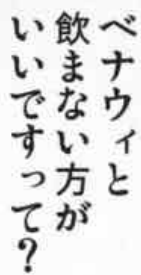 ベナウィと
飲まない方が
いいですって?